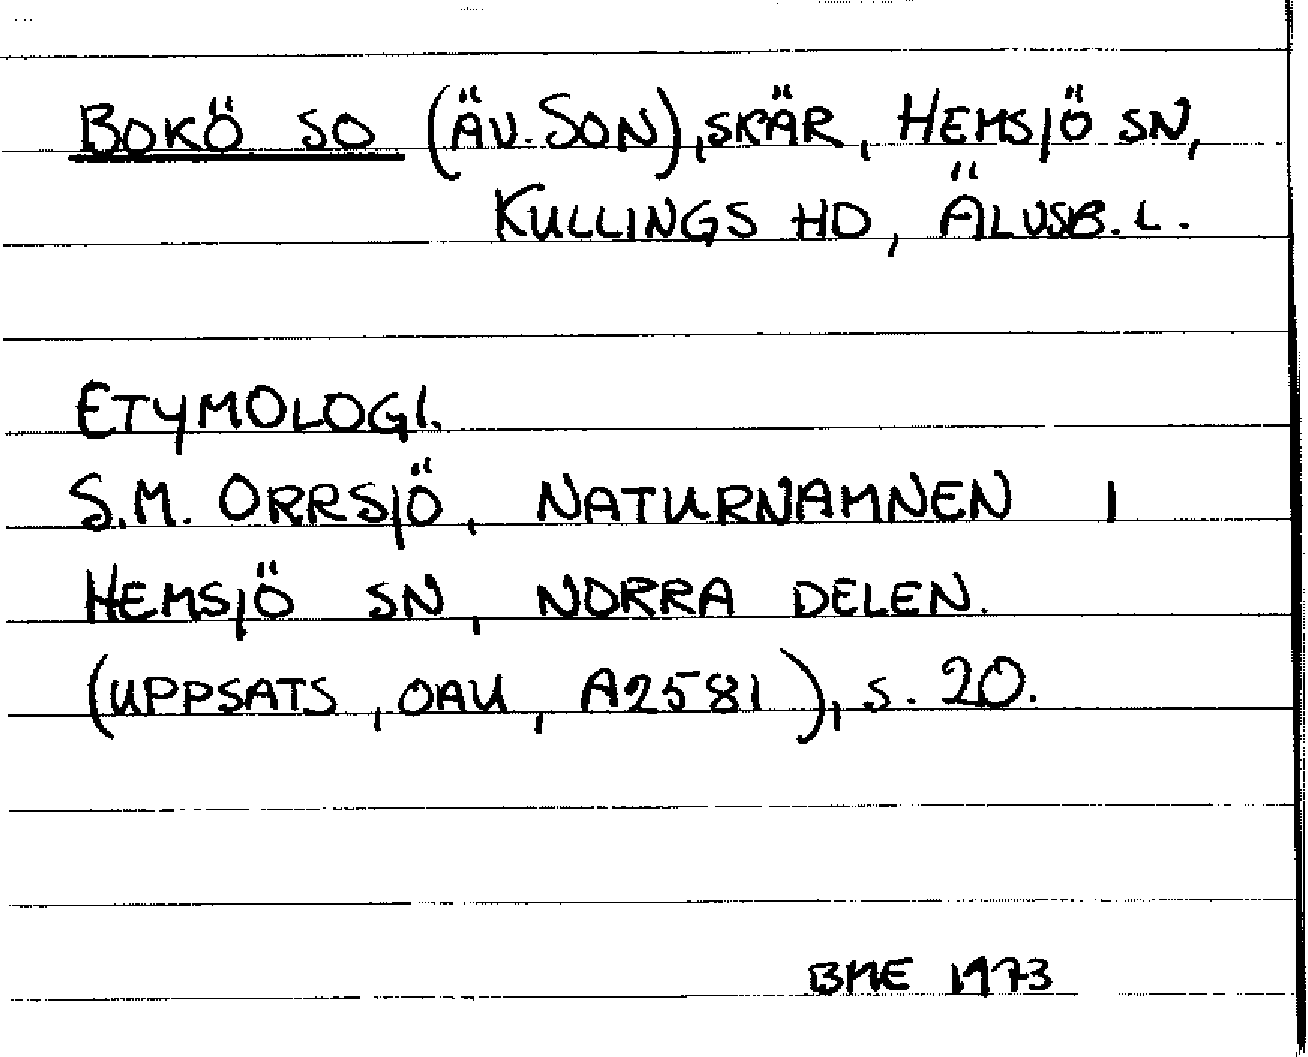 BOKÖ SO (ÄV. SON), SKÄR, HEMSJÖ SN,
KULLINGS HD, ÄLVSB. L.
ETYMOLOGI.
S.M. ORRSJÖ, NATURNAMNEN I
HEMSJÖ SN, NORRA DELEN.
(UPPSATS, OAU, A2581), S. 20.
BME 1973